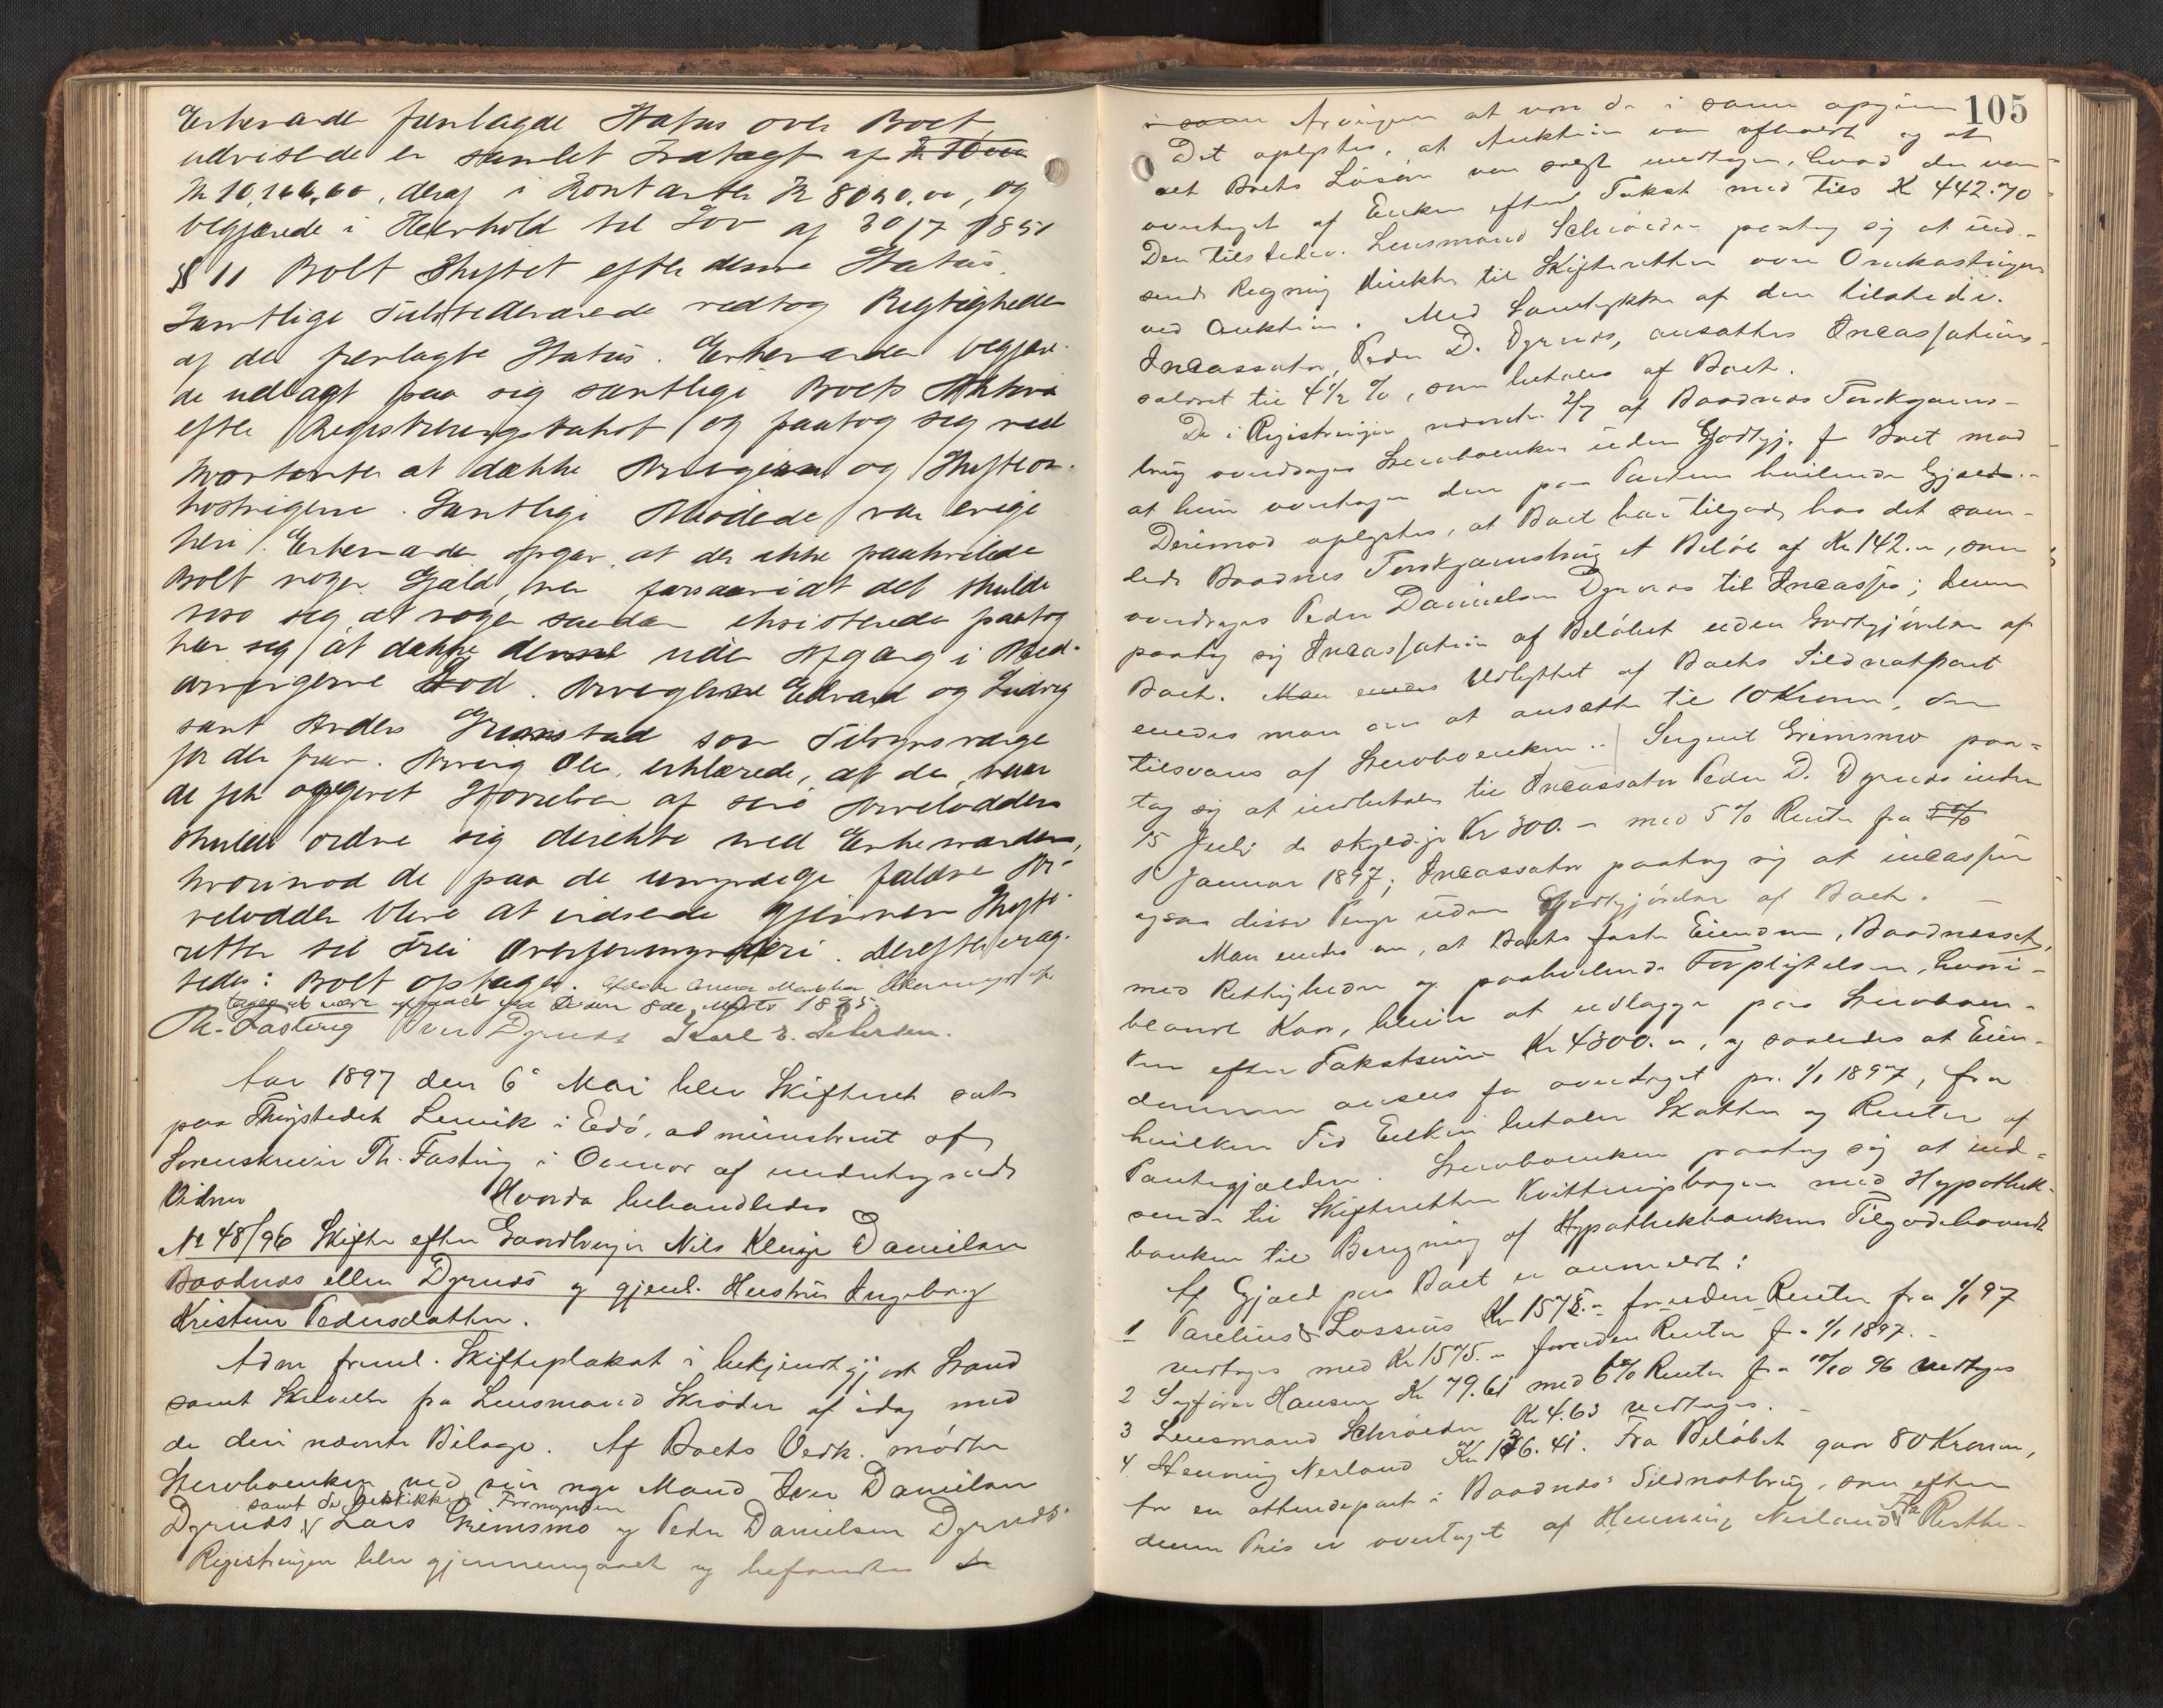 Enkemanden fremlagde Status over Boet
udvisende en samlet Indtægt af
Kr 10,166,60, deraf i Kontanter Kr 8020,00, og
begjærede i Henhold til Lov af 30/7 1851
§ 11 Boet skiftet efter denne Status.
Samtlige Tilstedeværende vedtog Rigtigheden
af den fremlagte Status. Enkemanden begjær-
de udlagt paa sig samtlige Boets Aktiva
efter Registreringstakst og paatog sig med
Kontanter at dække Arvingerne og Skifteom-
kostningerne. Samtlige Mødende var enige
heri. Enkemanden opgav, at der ikke paahvilede
Boet nogen Gjæld, men forsaavidt det skulde
vise sig at nogen saadan existerede paatog
han sig at dække denne uden Afgang i Med-
arvingernes Lod. Arvingerne Edvard og Ludvig
samt Anders Grimstad som Tilsynsværge
for den frav. Arving Ole, erklærede, at de, naar
de fik opgivet Størrelsen af sine Arvelodder
skulde ordne sig direkte med Enkemanden,
hvorimod de paa de umyndige faldne Ar-
velodder blive at indsende gjennem Skifte-
retten til Frei Overformynderi. Derefter eragt-
tedes: Boet optages.
tages at være afgjort fra denne 8de Marts 1895
Th. Fasting Iver Dyrnæs Karl E. Pedersen.
Aar 1897 den 6te Mai blev Skifteret sat
paa Thingstedet Lervik i Edø, administreret af
Sorenskriver Th. Fasting i Overvær af undertegnede
Vidner Hvorda behandledes
No 48/96 Skifte efter Gaardbruger Nils Kleuge Danielsen
Baadnæs eller Dyrnæs og gjenl. Hustru Ingeborg
Kristine Pedersdatter.
Adm freml. Skifteplakat i bekjendtgjort Stand
samt Skrivelse fra Lensmand Skrøder af idag med
de deri nævnte Bilage. Af Boets Vedk. mødte
Sterboenken med sin nye Mand Iver Danielsen
samt de beskikkede Formyndere
Dyrnæs Lars Grimsmo og Peder Danielsen Dyrnæs.
Registreringen blev gjennemgaaet og befandtes
105
Arvingerne at være de i samme opgivne
Det oplystes, at Auktion var afholdt og at
alt Boets Løsøre var solgt undtagen, hvad der var
overtaget af Enken efter Takst med tils K 442.70
Den tilstedev. Lensmand Schrøder paatog sig at ind-
sende Regning direkte til Skifteretten over Omkostningerne
ved Auktion. Med Samtykke af den tilstedev.
Incassator, Peder D. Dyrnæs, ansattes Incassations-
salæret til 4½ %, som betales af Boet.
De i Registreringen nævnte 2/7 af Baadnæs Torskgarns-
brug overdrages Sterboenken uden Godtgj. for Boet mod
at hun overtager den paa Parten hvilende Gjæld.-
Derimod oplystes, at Boet har tilgode hos det sam-
lede Baadnæs Torskgarnsbrug et Beløb af Kr 142.", som
overdrages Peder Danielsen Dyrnæs til Incasso; denne
paatog sig Incassation af Beløbet uden Godtgjørelse af
Boet. Udbyttet af Boets Sildnotpart
enedes man om at ansætte til 10 Kroner, der
tilsvares af Sterboenken. Sergent Grimsmo paa-
tog sig at indbetale til Incassator Peder D. Dyrnæs inden
15 Juli de skyldige Kr 300.- med 5 % Renter fra 5 %
1 Januar 1897; Incassator paatog sig at incassere
ogsaa disse Penge uden Godtgjørelse af Boet.
Man enedes om, at Boets faste Eiendom, Baadnæsset,
med Rettigheder og paahvilende Forpligtelser, hvori-
blandt Kaar, bliver at udlægge paa Sterboen-
ken efter Takstsum Kr 4300.", og saaledes at Eien-
dommen ansees for overdraget pr. 1/1 1897, fra
hvilken Tid Enken betaler Skatter og Renter af
Pantegjælden. Sterboenken paatog sig at ind-
sende til Skifteretten Kvitteringsbogen med Hypothek-
banken til Beregning af Hypothekbankens Tilgodehavende
Af Gjæld paa Boet er anmeldt:
1 Parelius & Lossius Kr 1575.- foruden Renter fra 1/1 97
vedtages med Kr 1575.- foruden Renter fra 1/1 1897.-
2 Sagfører Hansen Kr 79.61 med 6% Renter fra 10/10 96 vedtages
3 Lensmand Schrøder Kr 4.63 vedtages.
4 Henning Nerland Kr 136.41. Fra Beløbet gaar 80 Kroner,
for en ottendepart i Baadnæs Sildnotbrug, som efter
denne Pris er overtaget af Henning Nerland. Restbe-